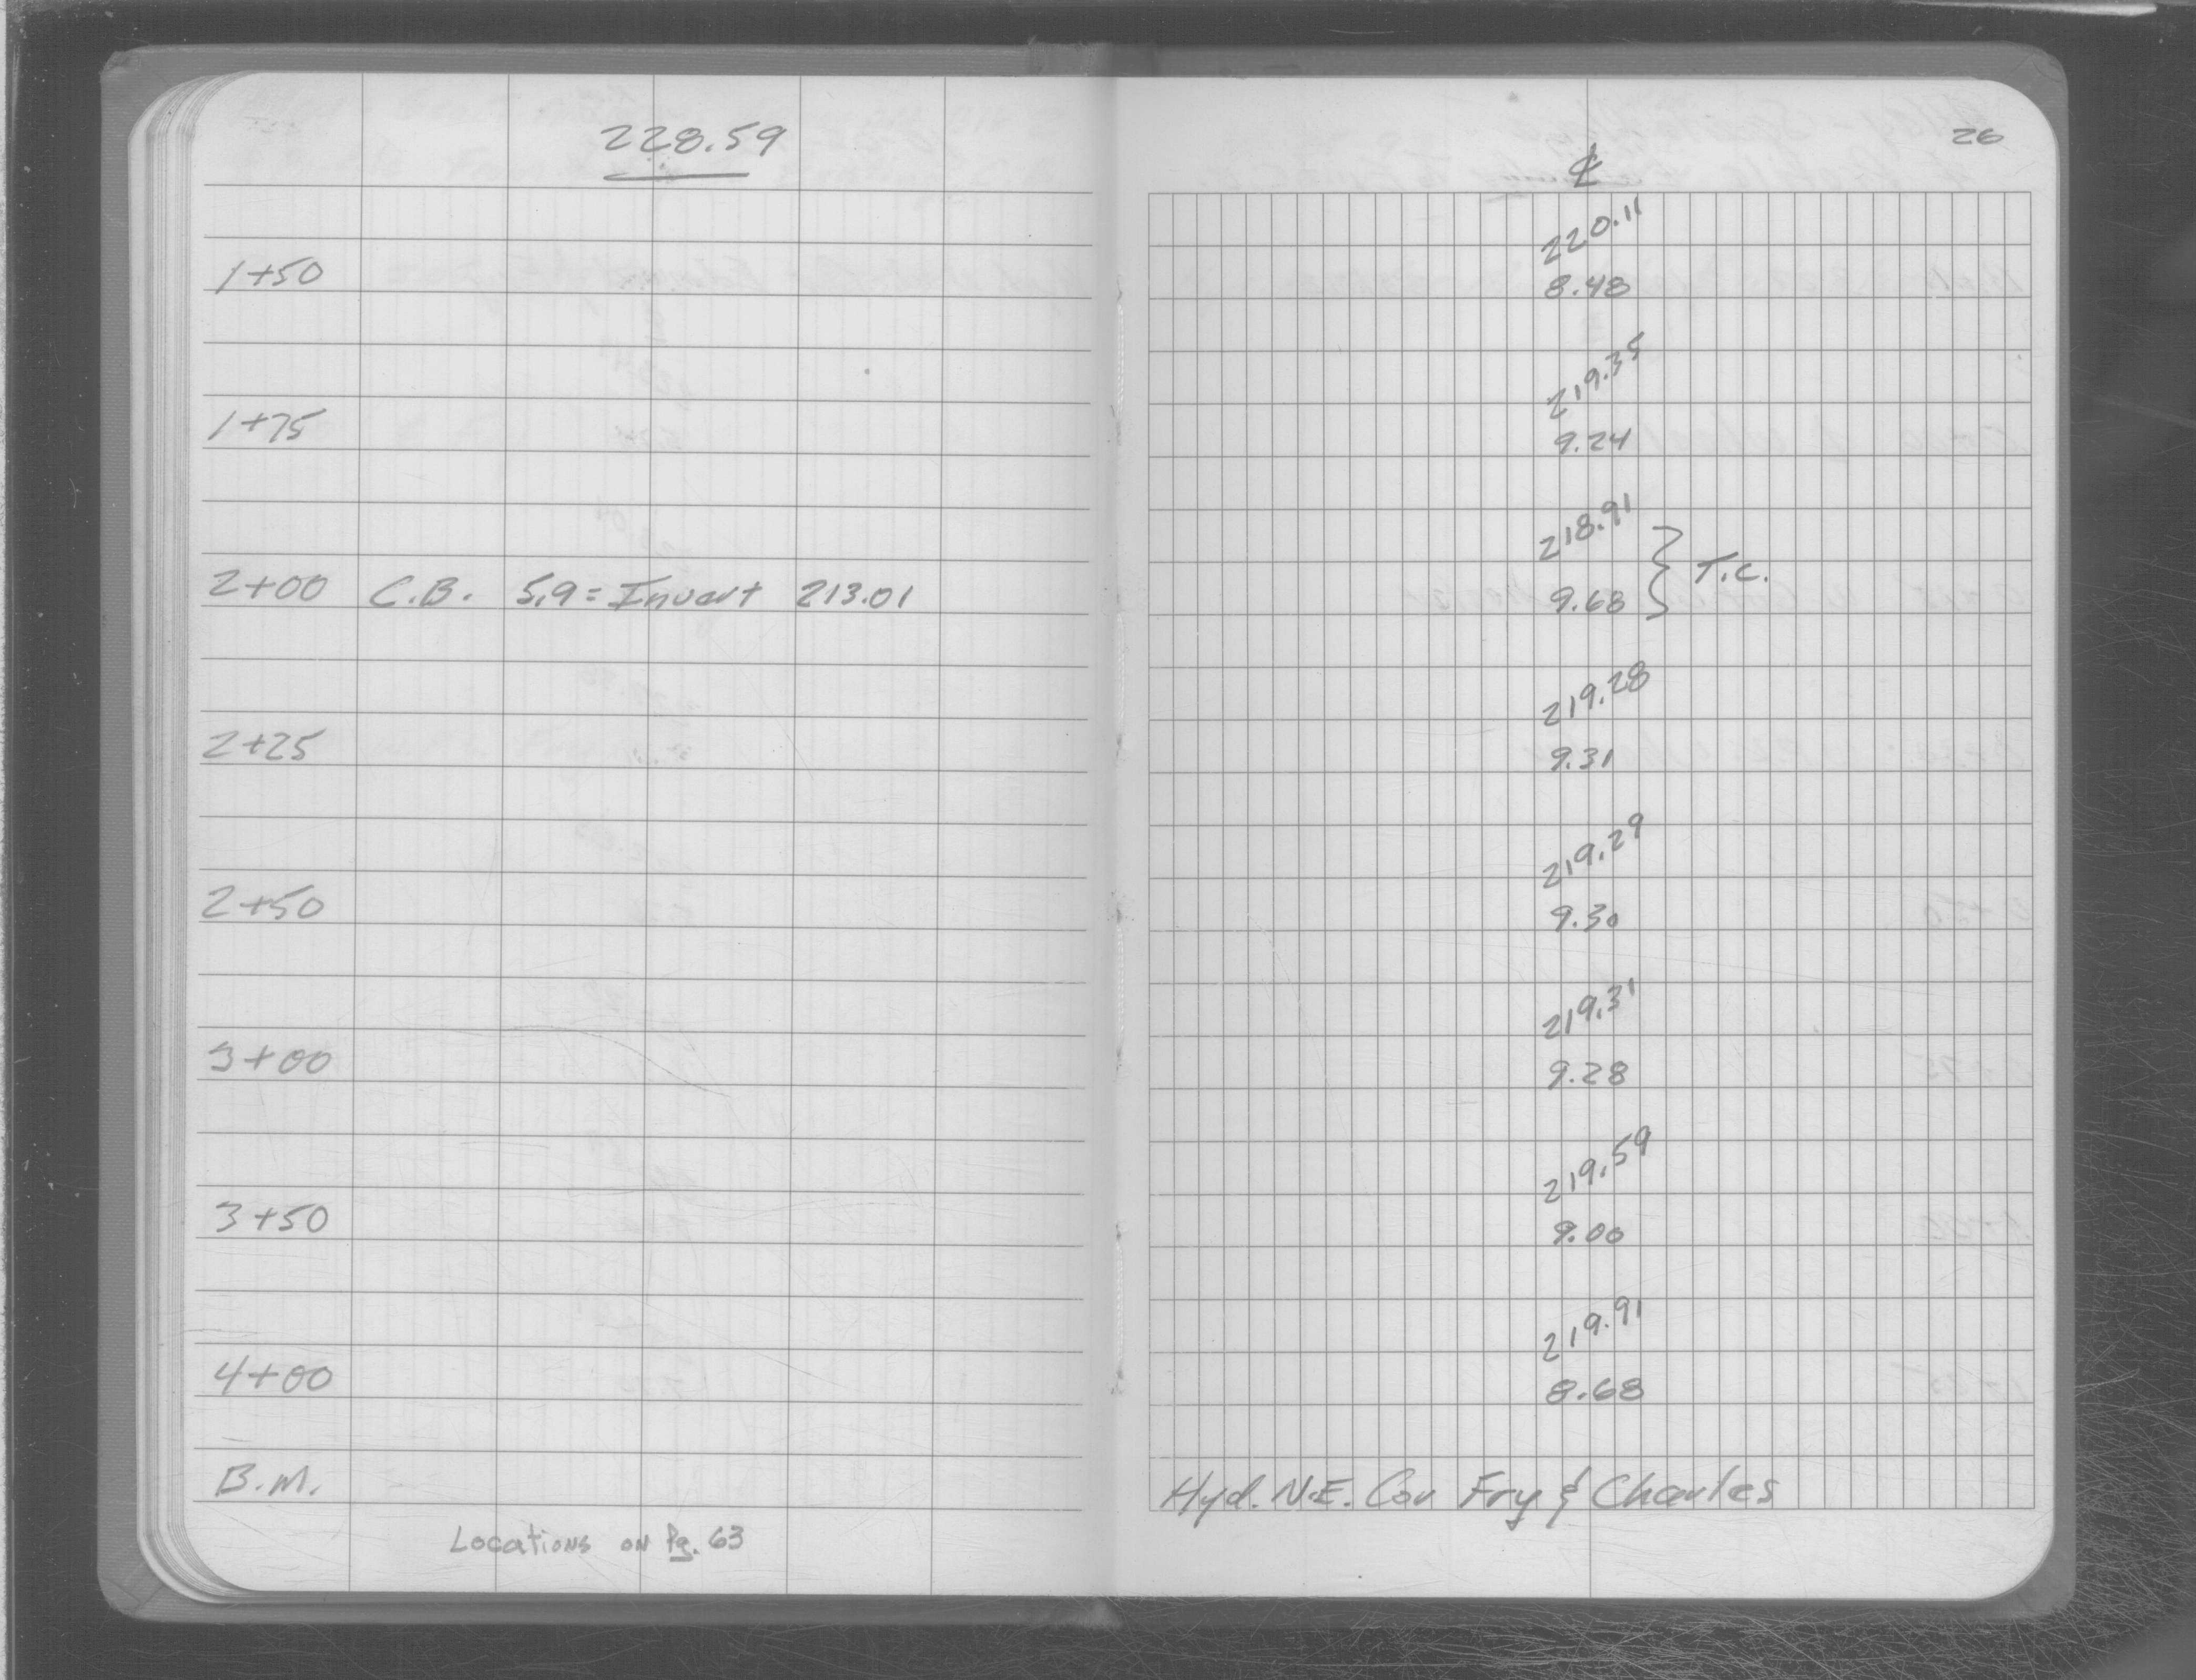 228.59
1+50
1+75
2+00 C.B. 5.9 = Invert 213.01
2+25
2+50
3+00
3+50
4+00
B.M.
Locations on Pg. 63
26
℄
220.11
8.48
219.35
9.24
218.91
9.68 } T.C.
219.28
9.31
219.29
9.30
219.31
9.28
219.59
9.00
219.91
8.68
Hyd. N.E. Cor Fry & Charles